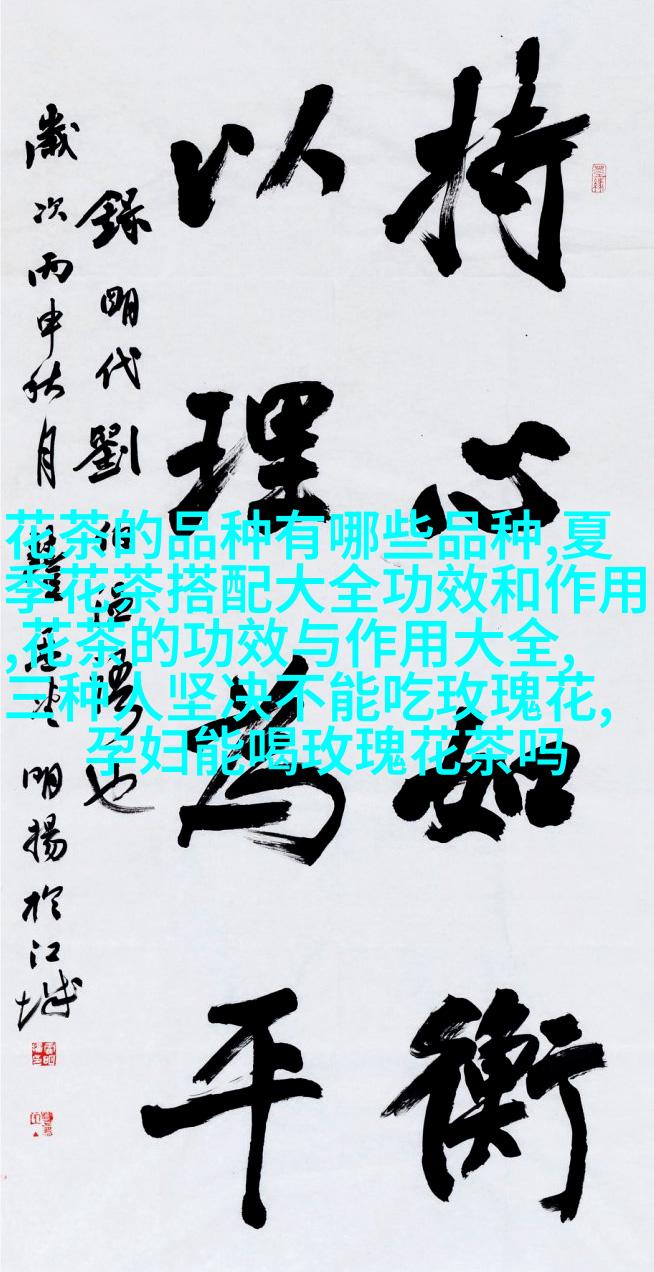 持心如衡
以理为平
錄明代劉伯溫語也
歲次丙申秋月
明揚於江城
花茶的品种有哪些品种,夏
季花茶搭配大全功效和作用
,花茶的功效与作用大全,
三种人坚决不能吃玫瑰花,
孕妇能喝玫瑰花茶吗